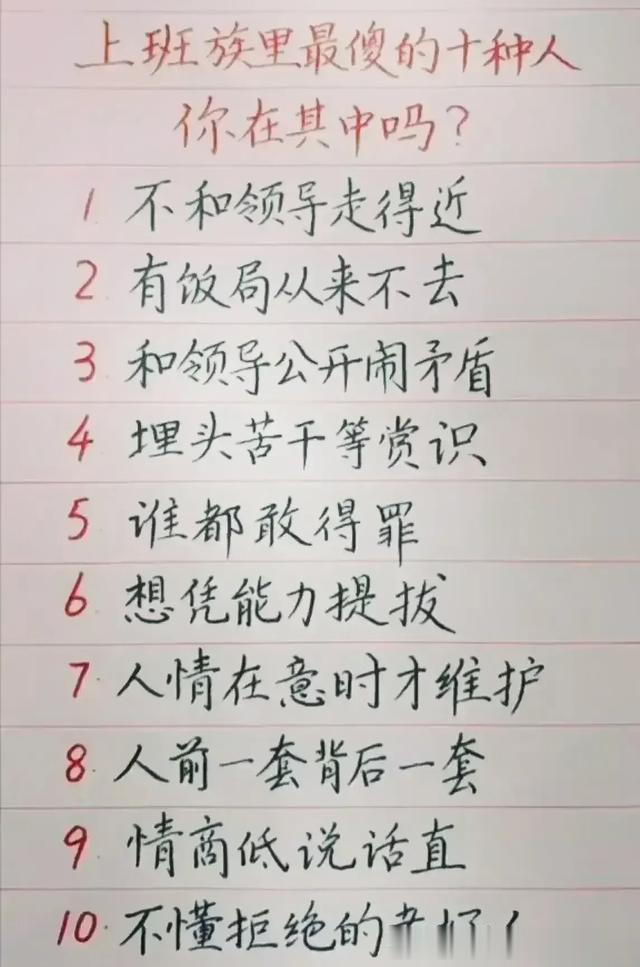 上班族里最傻的十种人
你在其中吗?
1 不和领导走得近
2 有饭局从来不去
3 和领导公开闹矛盾
4 埋头苦干等赏识
5 谁都敢得罪
6 想凭能力提拔
7 人情在意时才维护
8 人前一套背后一套
9 情商低说话直
10 不懂拒绝的老好人